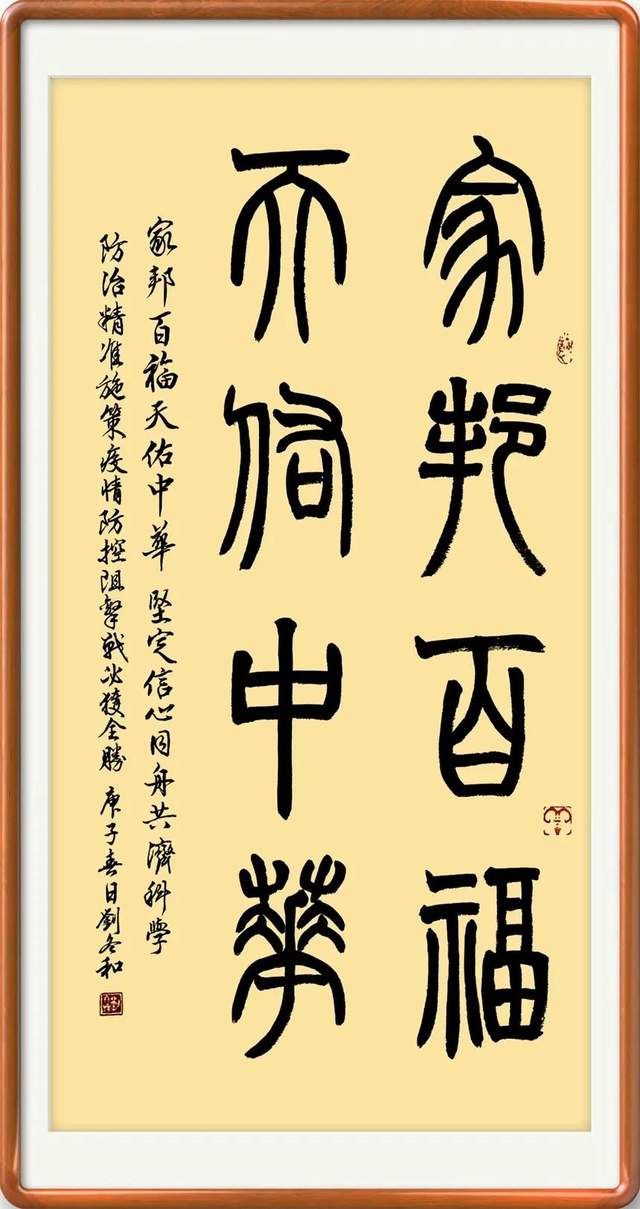 家邦百福
天佑中華
家邦百福天佑中華 堅定信心同舟共濟科學
防治精准施策疫情防控阻擊戰必獲全勝 庚子春日劉冬和